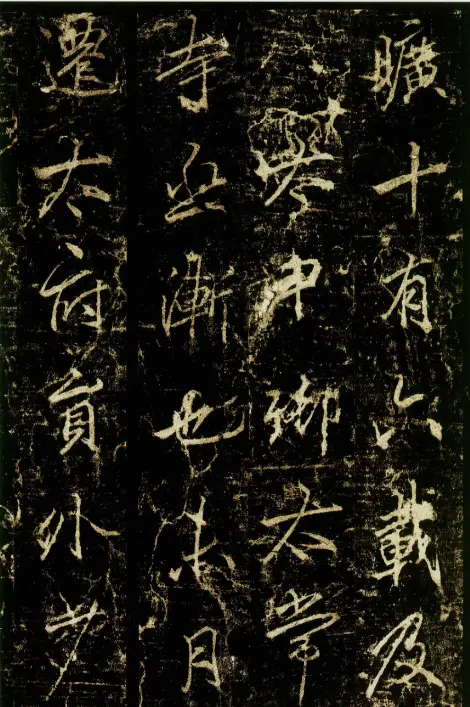 曠十有六載及
中太常
寺丞漸也未月
遷太府員外少